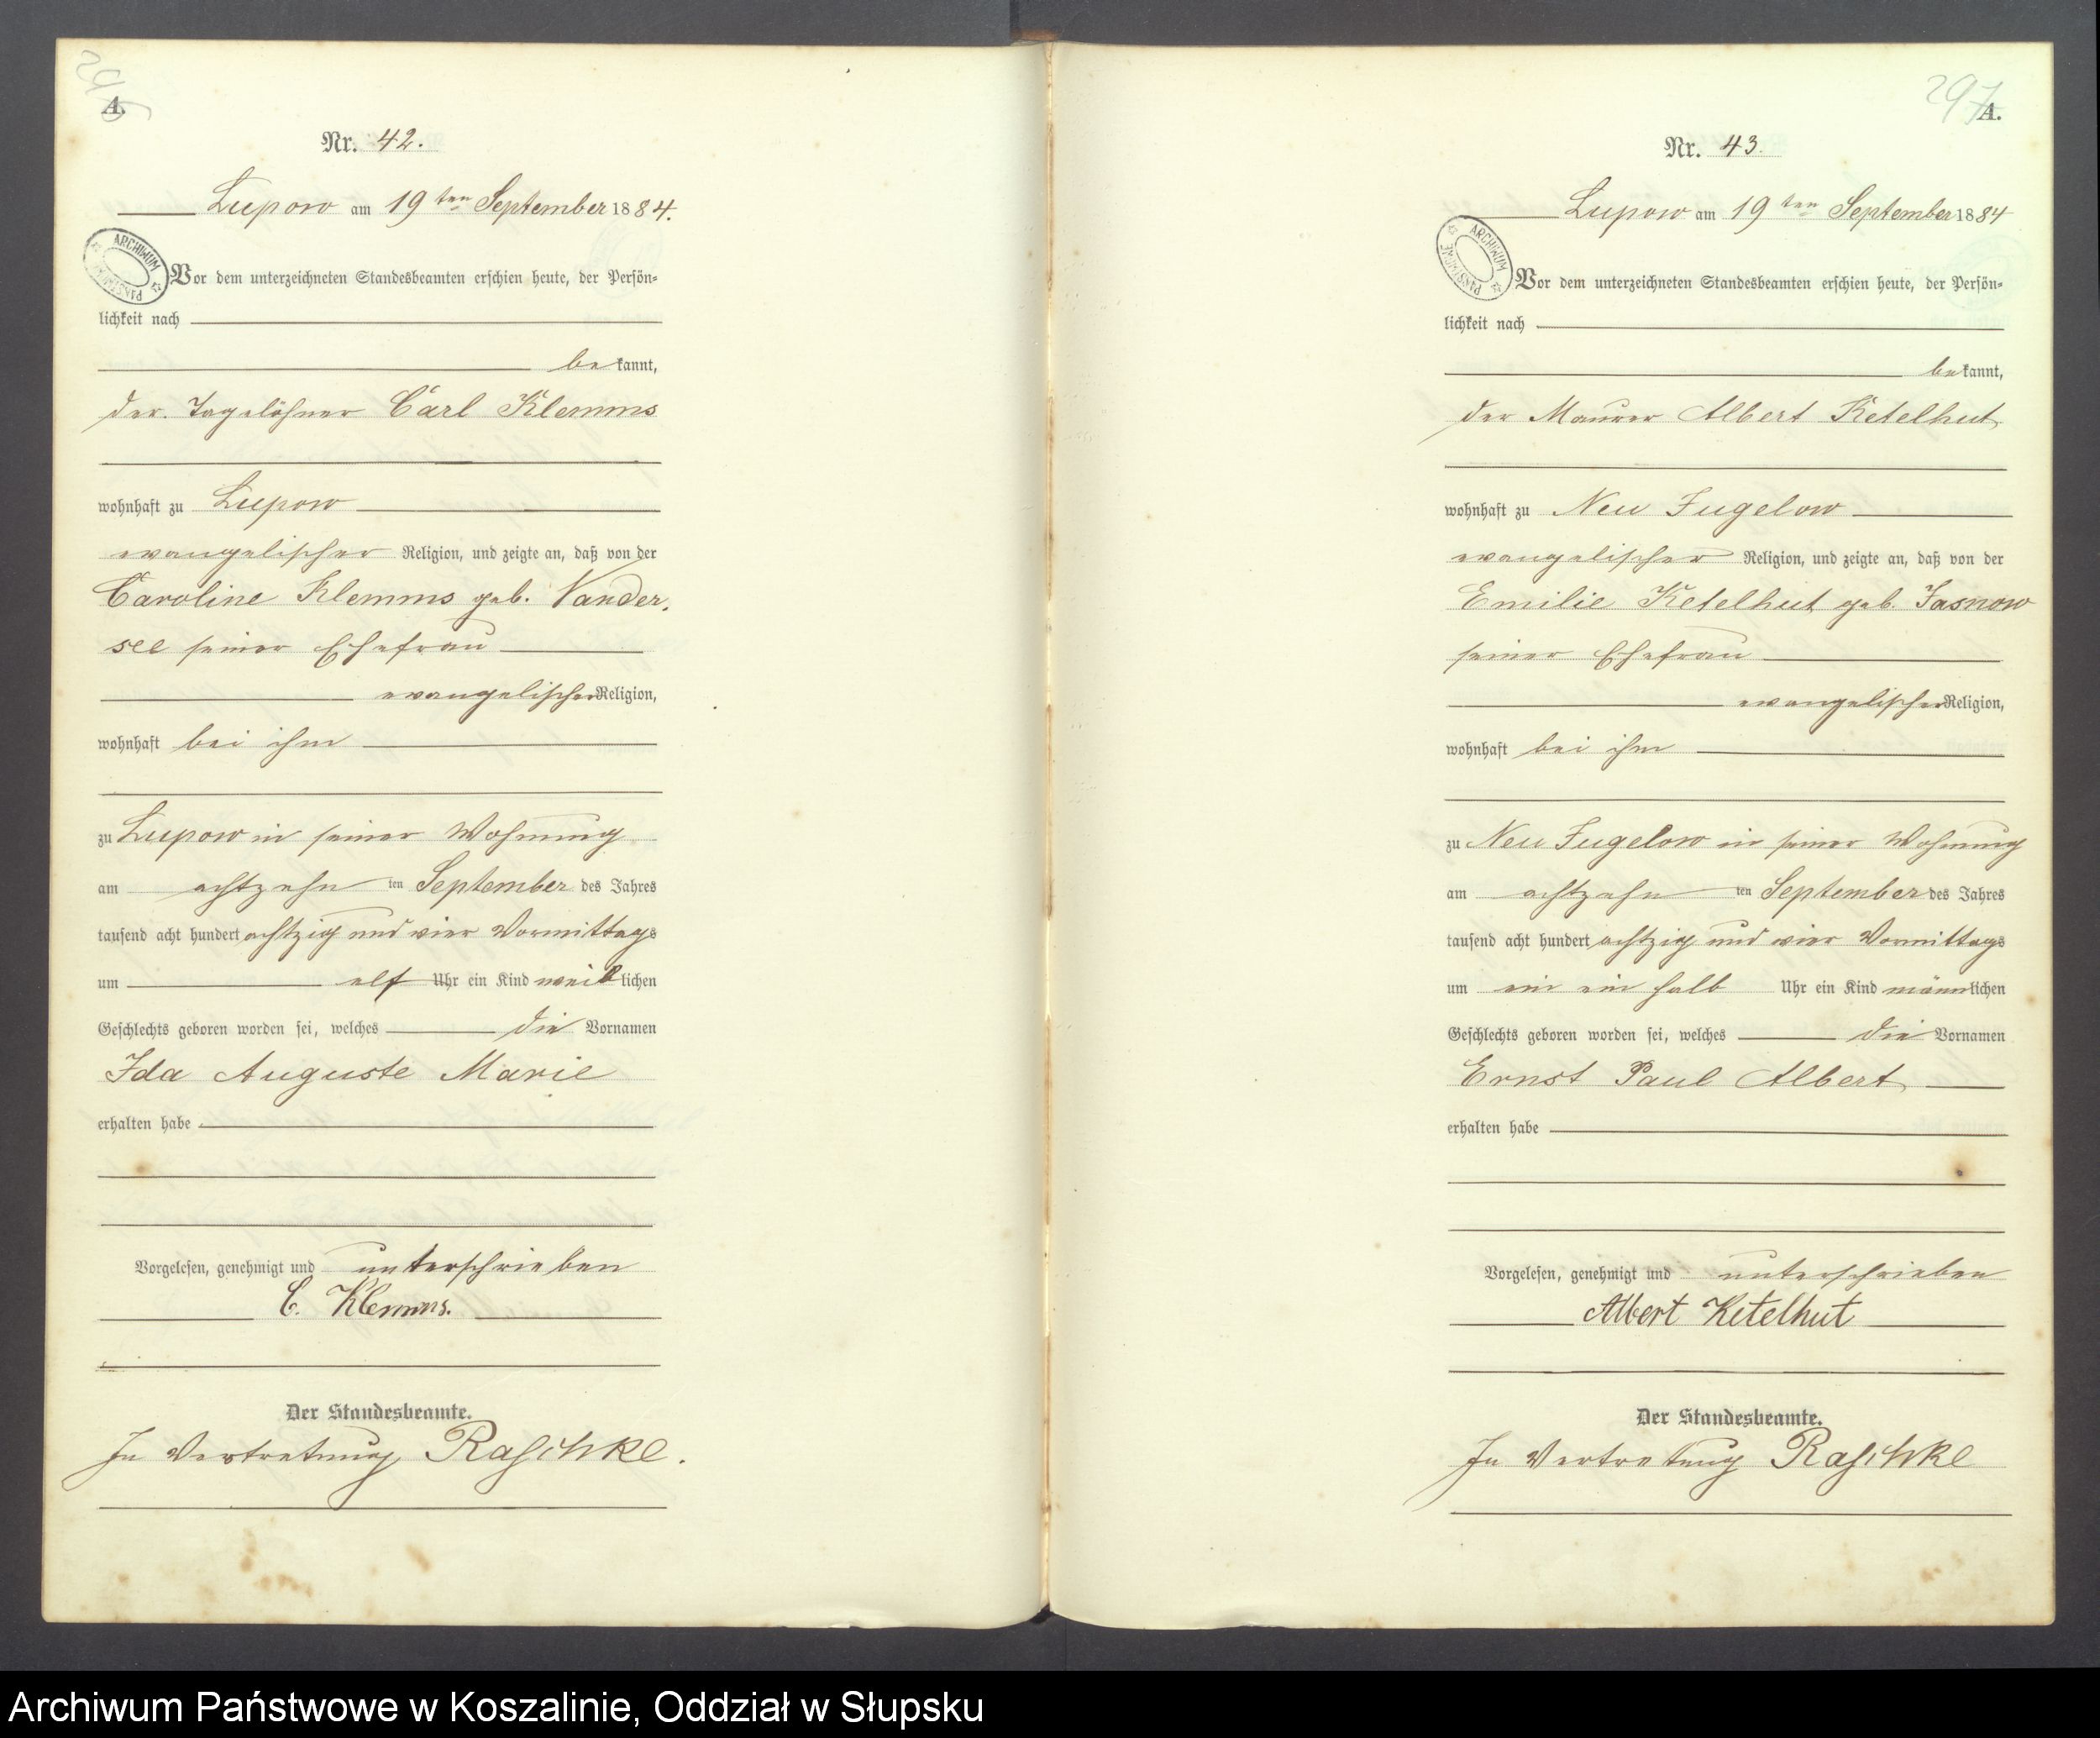 A.
Nr. 42.
Lupow am 19ten September 1884.
ARCHIWUM PAŃSTWOWE
Vor dem unterzeichneten Standesbeamten erschien heute, der Persön-
lichkeit nach
bekannt,
der Tagelöhner Carl Klemms
wohnhaft zu Lupow
evangelischer Religion, und zeigte an, daß von der
Caroline Klemms geb. Vander-
see seiner Ehefrau
evangelischer Religion,
wohnhaft bei ihm
zu Lupow in seiner Wohnung
am achtzehn ten September des Jahres
tausend acht hundert achtzig und vier Vormittags
um elf Uhr ein Kind weiblichen
Geschlechts geboren worden sei, welches die Vornamen
Ida Auguste Marie
erhalten habe
Vorgelesen, genehmigt und unterschrieben
C. Klemms.
Der Standesbeamte.
In Vertretung Raschke.
297
A.
Nr. 43.
Lupow am 19ten September 1884
ARCHIWUM PAŃSTWOWE
Vor dem unterzeichneten Standesbeamten erschien heute, der Persön-
lichkeit nach
bekannt,
der Maurer Albert Ketelhut
wohnhaft zu Neu Jugelow
evangelischer Religion, und zeigte an, daß von der
Emilie Ketelhut geb. Jasnow
seiner Ehefrau
evangelischer Religion,
wohnhaft bei ihm
zu Neu Jugelow in seiner Wohnung
am achtzehn ten September des Jahres
tausend acht hundert achtzig und vier Vormittags
um ein ein halb Uhr ein Kind männlichen
Geschlechts geboren worden sei, welches die Vornamen
Ernst Paul Albert
erhalten habe
Vorgelesen, genehmigt und unterschrieben
Albert Ketelhut
Der Standesbeamte.
In Vertretung Raschke
Archiwum Państwowe w Koszalinie, Oddział w Słupsku